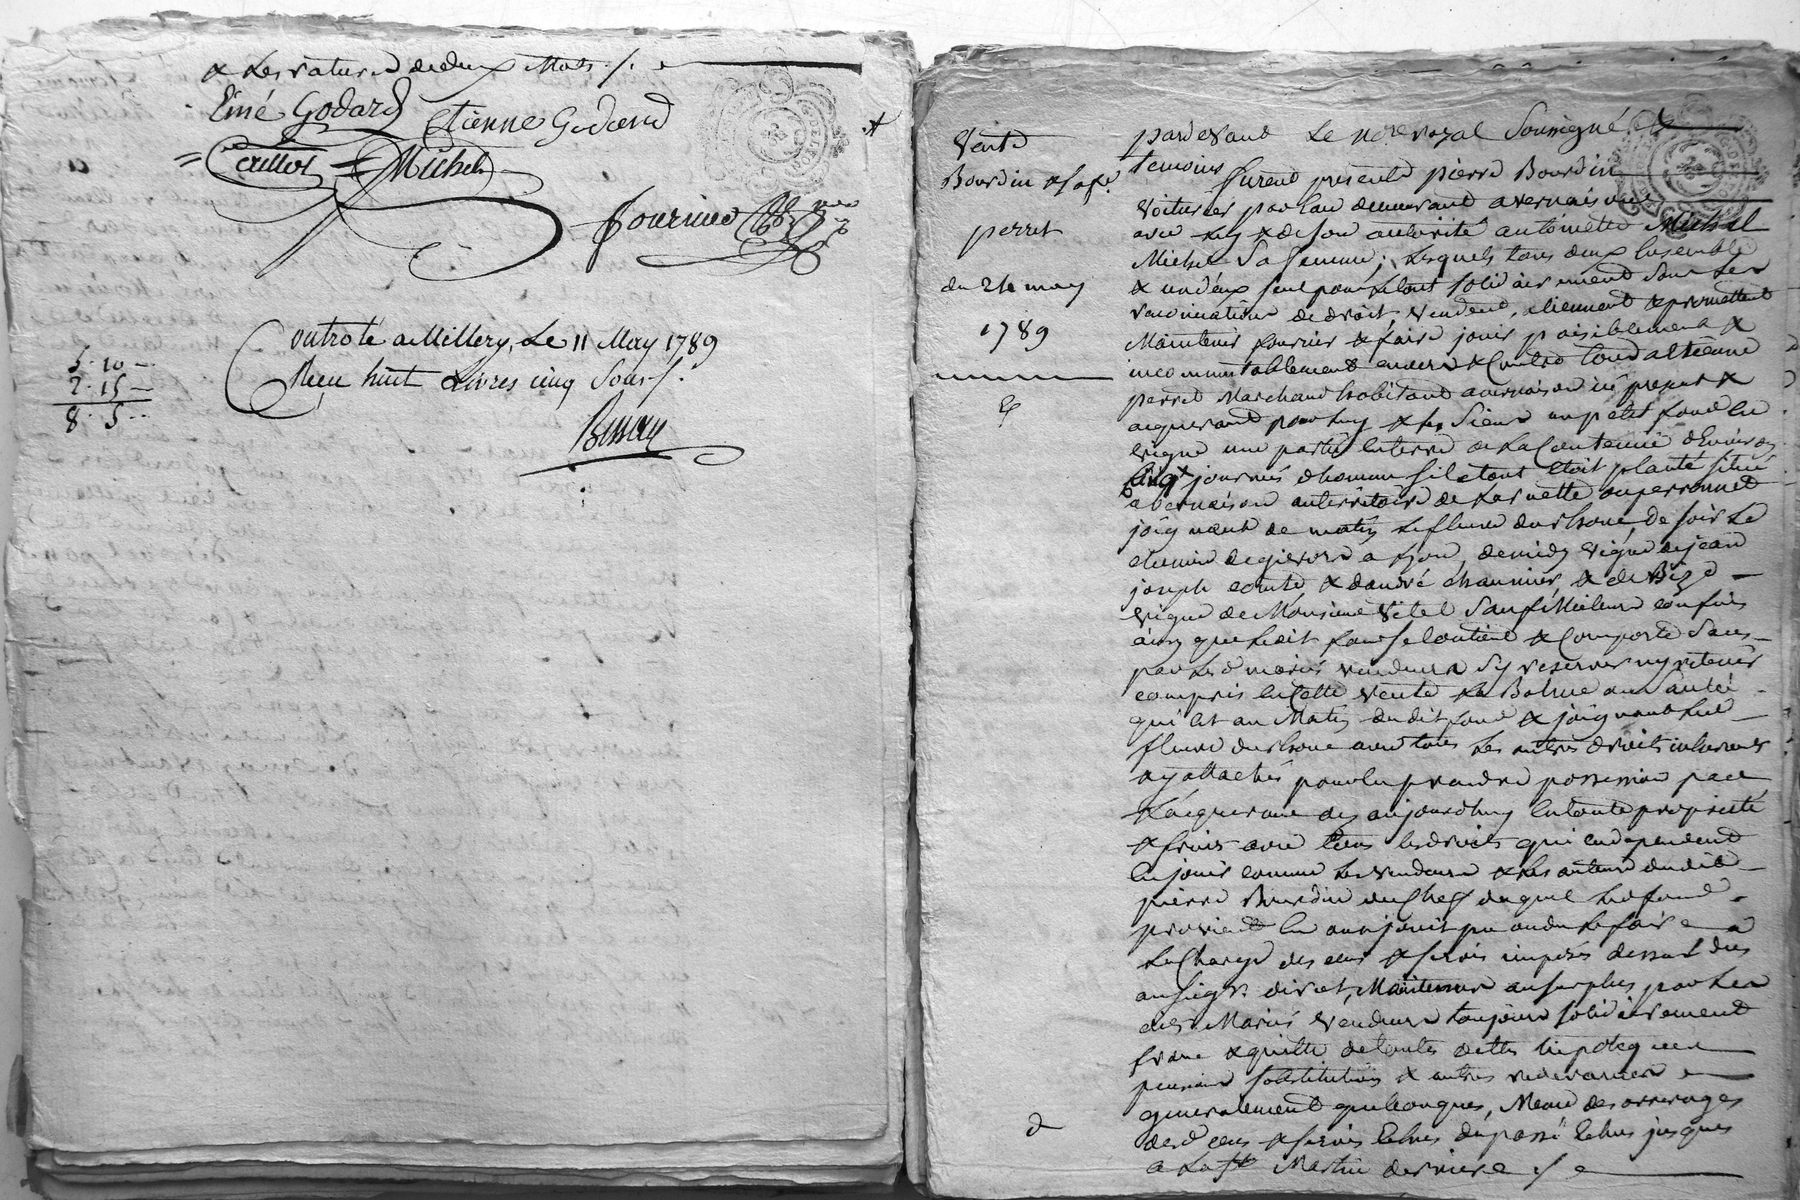 & les ratures de deux mots ./.
Einé Godard Etienne Godard
Caillot Michel
fournier
Controlé a Millery, Le 11 May 1789
Reçu huit Livres cinq Sous ./.
5. 10 —
2. 15 —
8. 5 --
Vente
Bourdin & sa fe.
perret
du 24 may
1789
pardevant Le nore royal Soussigné &
temoins furent presents pierre Bourdin
voiturier par eau demeurant a vernaison
avec luy & de son autorité antoinette Michel
Michel Sa femme; Lesquels tous deux Ensemble
& un d'eux seul pour le tout solidairement sous les
renonciations de droit, vendent, alienent & promettent
Maintenir fournir & faire jouir paisiblement &
incommutablement envers & Contre tous a Etienne
perret Marchand habitant a vernaison icy present &
acquerant pour luy & les Siens un petit fond en
vigne une partie en terre de la Contenue d'Environ
Cinq journés d'homme si le tout etoit planté situé
a vernaison au territoire de Larnette ou perronnet
joignant de matin le fleuve du rhone, de soir le
chemin de givors a Lyon, de midy vigne de jean
joseph comte & d'andré chaumier & de Bize
vigne de Monsieur Vitel Sauf Meilleurs confins
ainsy que ledit fond se Contient & Comporte Sans
par les d. mariés vendeurs S'y reserver ny retenir
compris en Cette vente la Balme
qui est au Matin dudit fond & joignant led.
fleuve du rhone avec tous les autres droits inherents
& y attachés pour en prendre possession par
l'acquereur des aujourd'huy en toute proprieté
& fruits avec tous les droits qui en dependent
en jouir comme les vendeurs & les auteurs dudit
pierre Bourdin du Chef duquel led. fond
provient en ont jouit pu ou du le faire a
La Charge des cens & servis imposés dessus dus
au seigr. direct, Maintenu au surplus par les
dits Mariés vendeurs toujours solidairement
franc & quitte de toutes dettes hipoteques
pensions substitutions & autres redevances
generalement quelconques, Meme des arrerages
desd. cens & servis Echus du passé Echus jusques
a la St. Martin derniere ./.